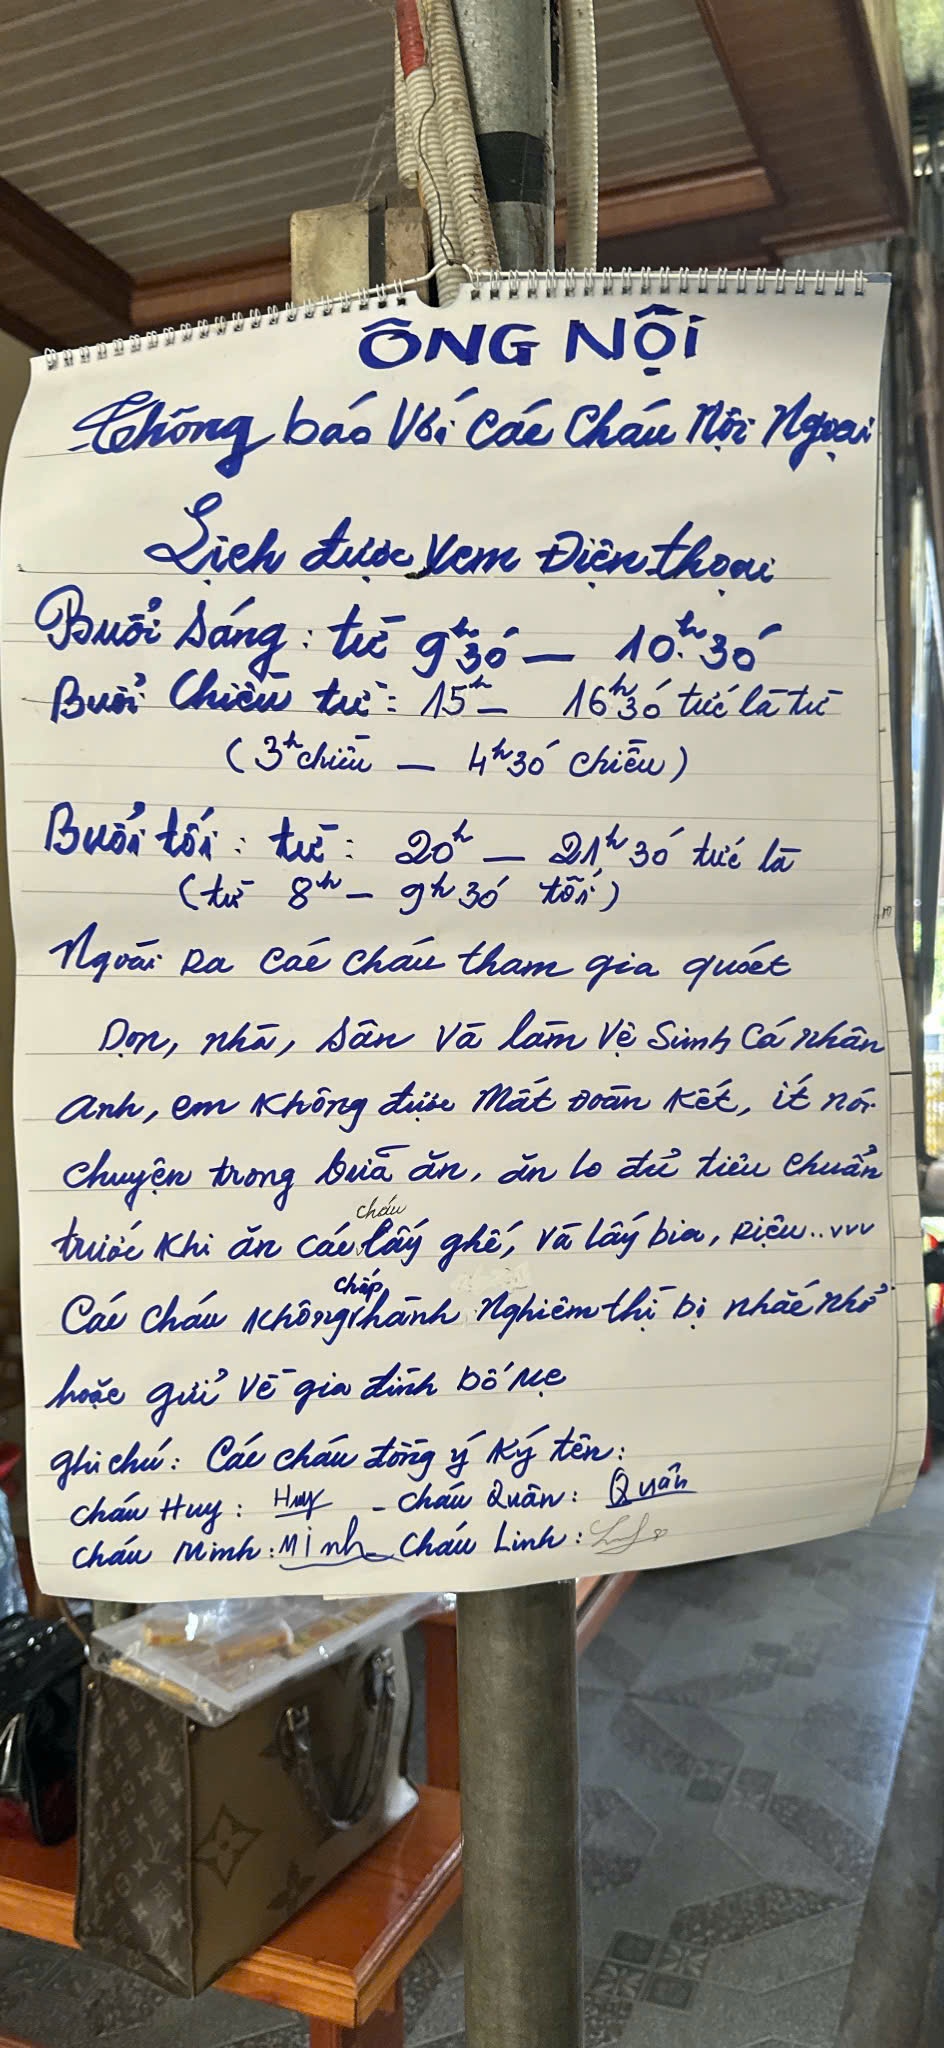 ÔNG NỘI
Thông báo Với các cháu Nội Ngoại
Lịch được xem Điện thoại
Buổi sáng: từ 9h30 — 10h30
Buổi Chiều từ: 15h — 16h30 tức là từ
(3h chiều — 4h30 chiều)
Buổi tối: từ: 20h — 21h30 tức là
(từ 8h — 9h30 tối)
Ngoài ra các cháu tham gia quét
Dọn, nhà, sân và làm vệ sinh cá nhân
anh, em không được mất đoàn kết, ít nói
chuyện trong bữa ăn, ăn lo đủ tiêu chuẩn
trước khi ăn các cháu lấy ghế, và lấy bia, rượu..vvv
Các cháu không chấp hành nghiêm thì bị nhắc nhở
hoặc gửi về gia đình bố mẹ
ghi chú: Các cháu đồng ý ký tên:
cháu Huy: Huy - cháu Quân: Quân
cháu Minh: Minh - cháu Linh: